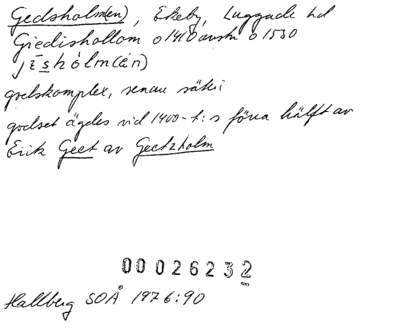 Gedsholm(en), Ekeby, Luggude hd
Giedishollom o 1410 avskr o 1530
jēshòlm(én)
godskomplex, senare säteri
godset ägdes vid 1400-t:s förra hälft av
Erik Geet av Geetzholm
00026232
Hallberg SOÅ 1976:90